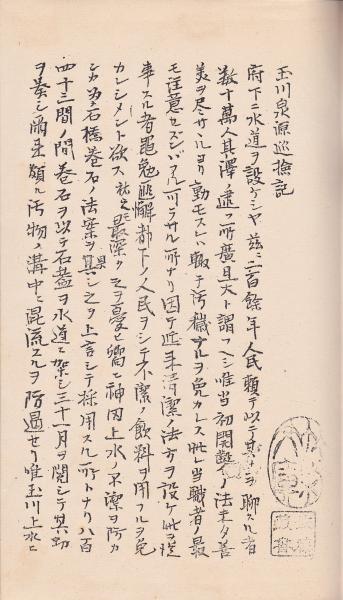 玉川泉源巡検記
府下ニ水道ヲ設ケシヤ茲ニ二百餘年人民頼テ以テ其生ヲ聊スル者
数十萬人其澤ノ遠フ所廣且大ト謂フヘシ唯当初開鑿ノ法未タ善
美ヲ尽サヽルヨリ動モスレハ輙チ汚穢ナルヲ免カレス此レ当職者ノ最
モ注意セズンバアル可ラサル所ナリ因テ近来清潔ノ法方ヲ設ケ此ニ従
事スル者黽勉匪懈都下ノ人民ヲシテ不潔ノ飲料ヲ用フルヲ免
カレシメント欲ス 最深ク之ヲ憂ヒ嚮ニ神田上水ノ不潔ヲ防カ
シカ為メ石樋巻石ノ法案ヲ具シ之ヲ上言シテ採用スル所トナリ八百
四十三間ノ間巻石ヲ以テ石蓋ヲ水道ニ架シ三十一月ヲ閲シテ其功
ヲ奏シ爾来頗ル汚物ノ溝中ニ混流スルヲ防遏セリ唯玉川上水ニ